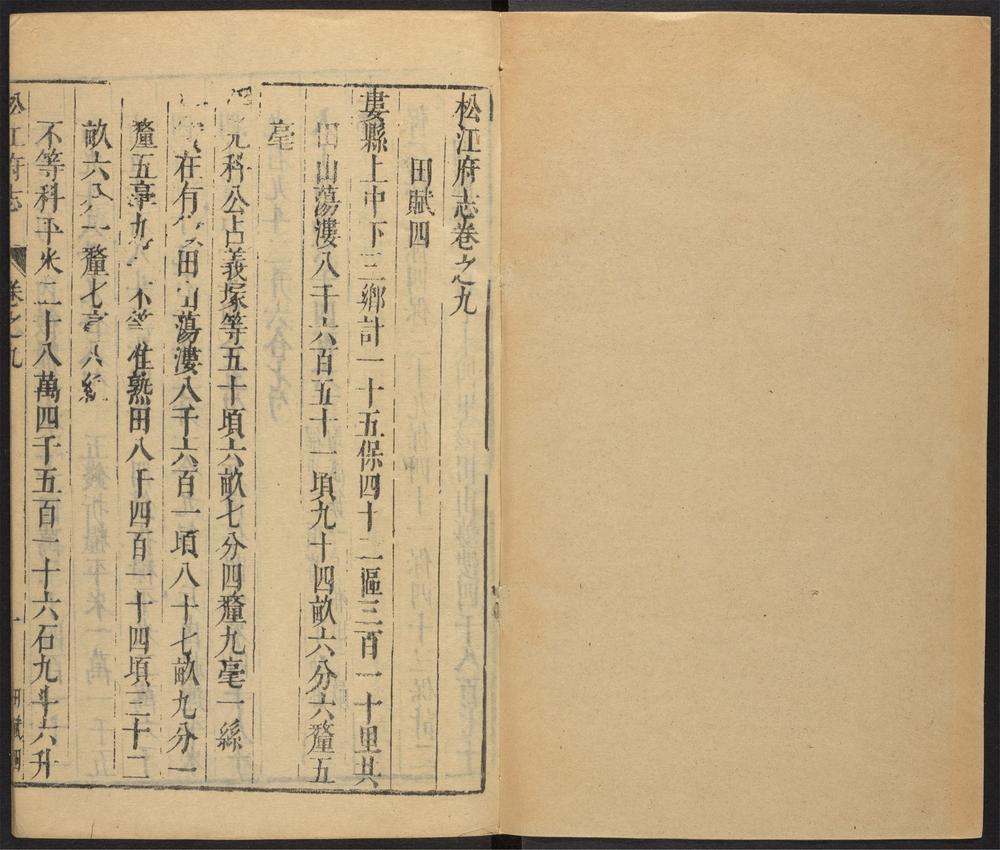 松江府志卷之九
田賦四
婁縣上中下三鄉計一十五保四十二區三百一十里共
田山蕩漊八千六百五十一頃九十四畝六分六釐五
毫
元科公占義塚等五十頃六畝七分四釐九毫一絲
在有田山蕩漊八千六百一頃八十七畝九分一
釐五毫九 不等准熟田八千四百一十四頃三十二
畝六分一釐七毫八絲
不等科平米二十八萬四千五百一十六石九斗六升
松江府志 卷之九 一 田賦四